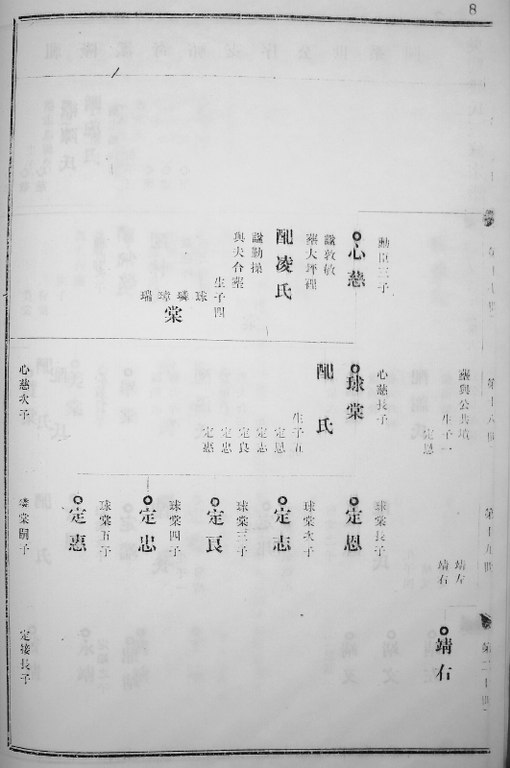 8
勳臣三子
心慈
諡敦敏
塟大坪裡
配凌氏
諡勤操
與夫合塟
生子四
球
璘
璋
瑞
棠
塟與公共墳
生子一
定恩
心慈長子
球棠
配 氏
生子五
定恩
定志
定良
定忠
定惠
心慈次子
第十九世
靖左
靖右
球棠長子
定恩
球棠次子
定志
球棠三子
定良
球棠四子
定忠
球棠五子
定惠
璘棠嗣子
第二十世
靖右
定接長子